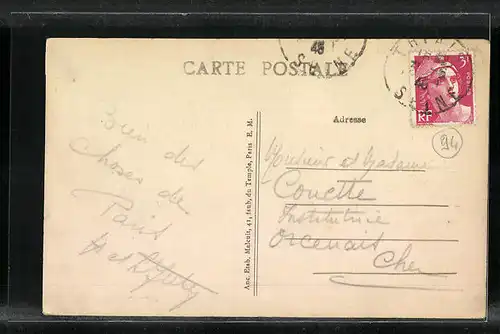 45
SEINE
THIAIS
SEINE
3F
RF
CARTE POSTALE
Adresse
94
Bien des
choses de
Paris
Monsieur et Madame
Couette
Institutrice
Orcenais
Cher
Anc. Étab. Malcuit, 41, faub. du Temple, Paris E. M.